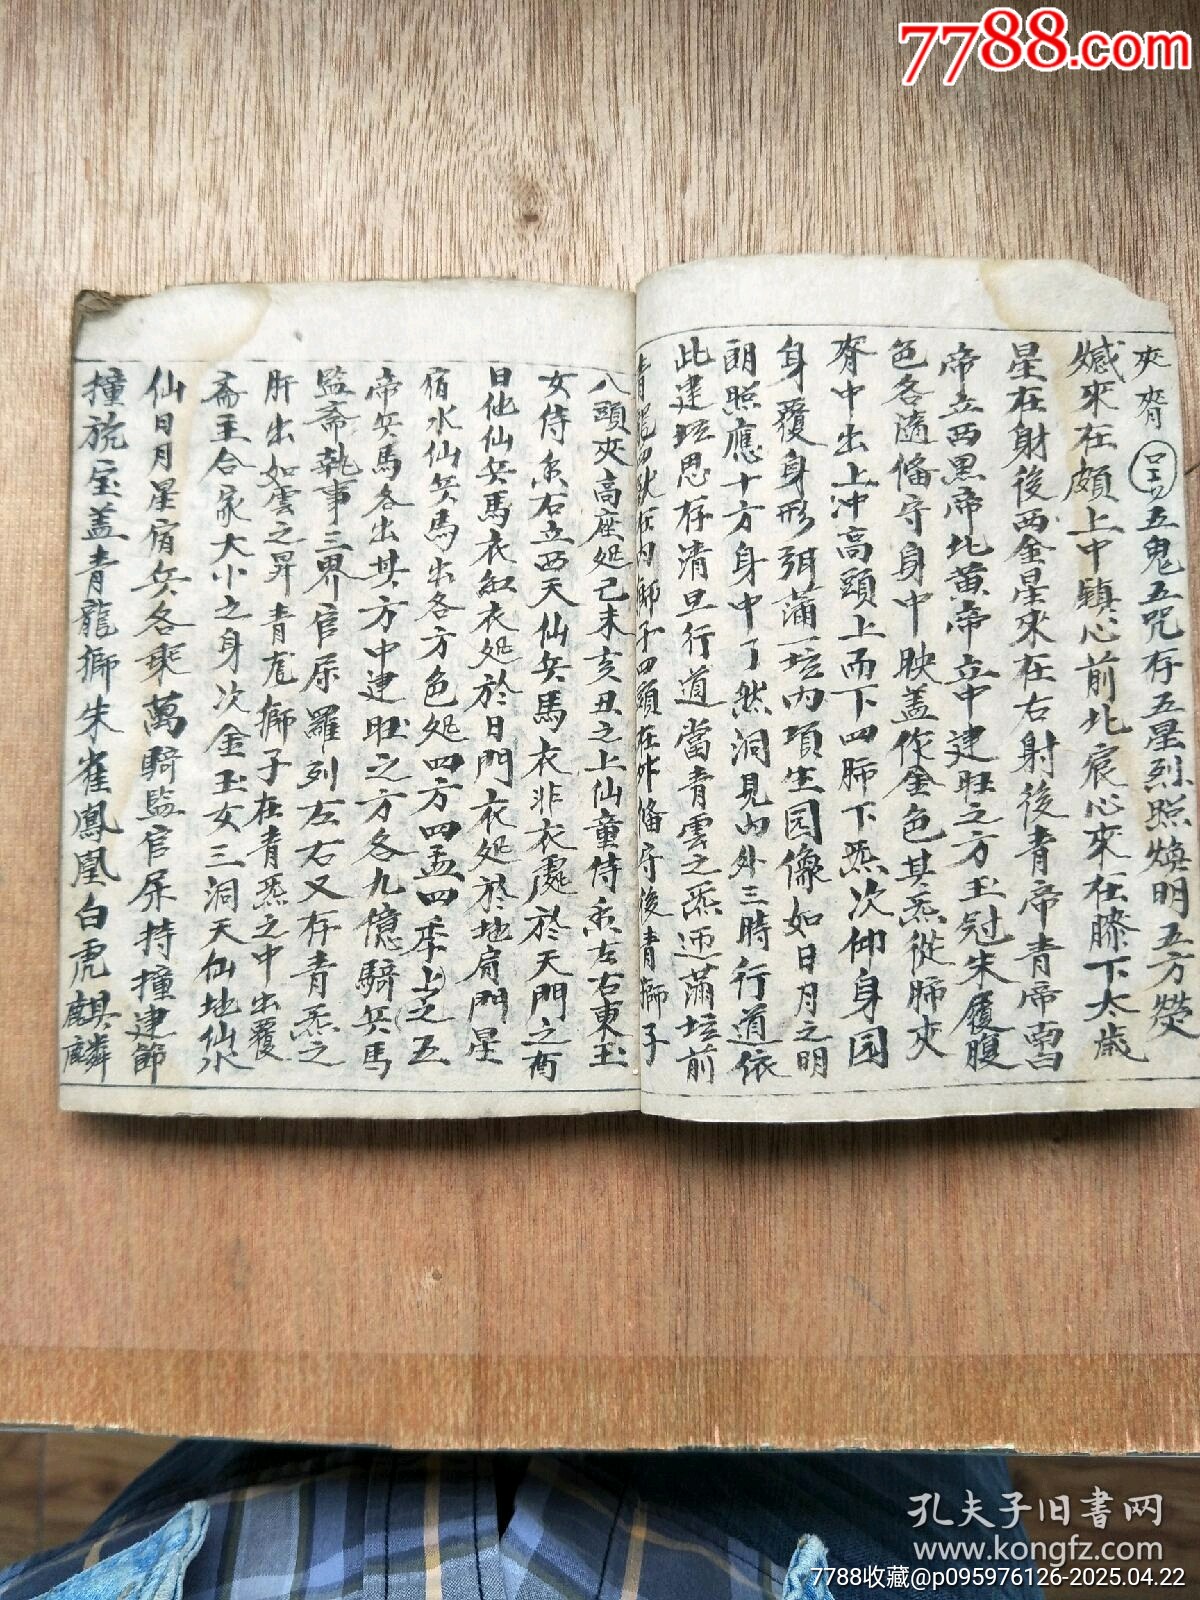 7788.com
夾脊五鬼五咒存五星烈照煥明五方熒
憾來在頗上中鎮心前北宸心來在膝下太歲
星在射後西金星來在右射後青帝青帝
帝立西黑帝北黃帝立中建旺之方玉冠朱履腹
色各隨偹守身中映盖作金色其炁從肺夾
脊中出上冲高頭上而下四肺下炁次仰身园
身覆身形弭蒲一坛内項生园像如日月之明
朗照應十方身中了然洞見内外三時行道依
此建坛思存清旦行道當青雲之炁迊蒲坛前
在内獅子四頭在外偹守後青獅子
八頭夾高座処己未亥丑之上仙童侍香左右東玉
女侍香右立西天仙兵馬衣非衣處於天門之酉
日他仙兵馬衣紅衣処於日門衣処於地肩門星
宿水仙兵馬出各方色処四方四孟四季上之五
帝兵馬各出其方中建旺之方各九億騎兵馬
監斎執事三界官屌羅列左右又存青炁之
肝出如雲之昇青尨獅子在青炁之中出覆
斎主合家大小之身次金玉女三洞天仙地仙水
仙日月星宿兵各乘萬騎監官屌持撞建節
撞旈宝盖青龍獅朱雀鳳凰白虎麒麟
孔夫子旧书网
www.kongfz.com
7788收藏@p095976126-2025.04.22